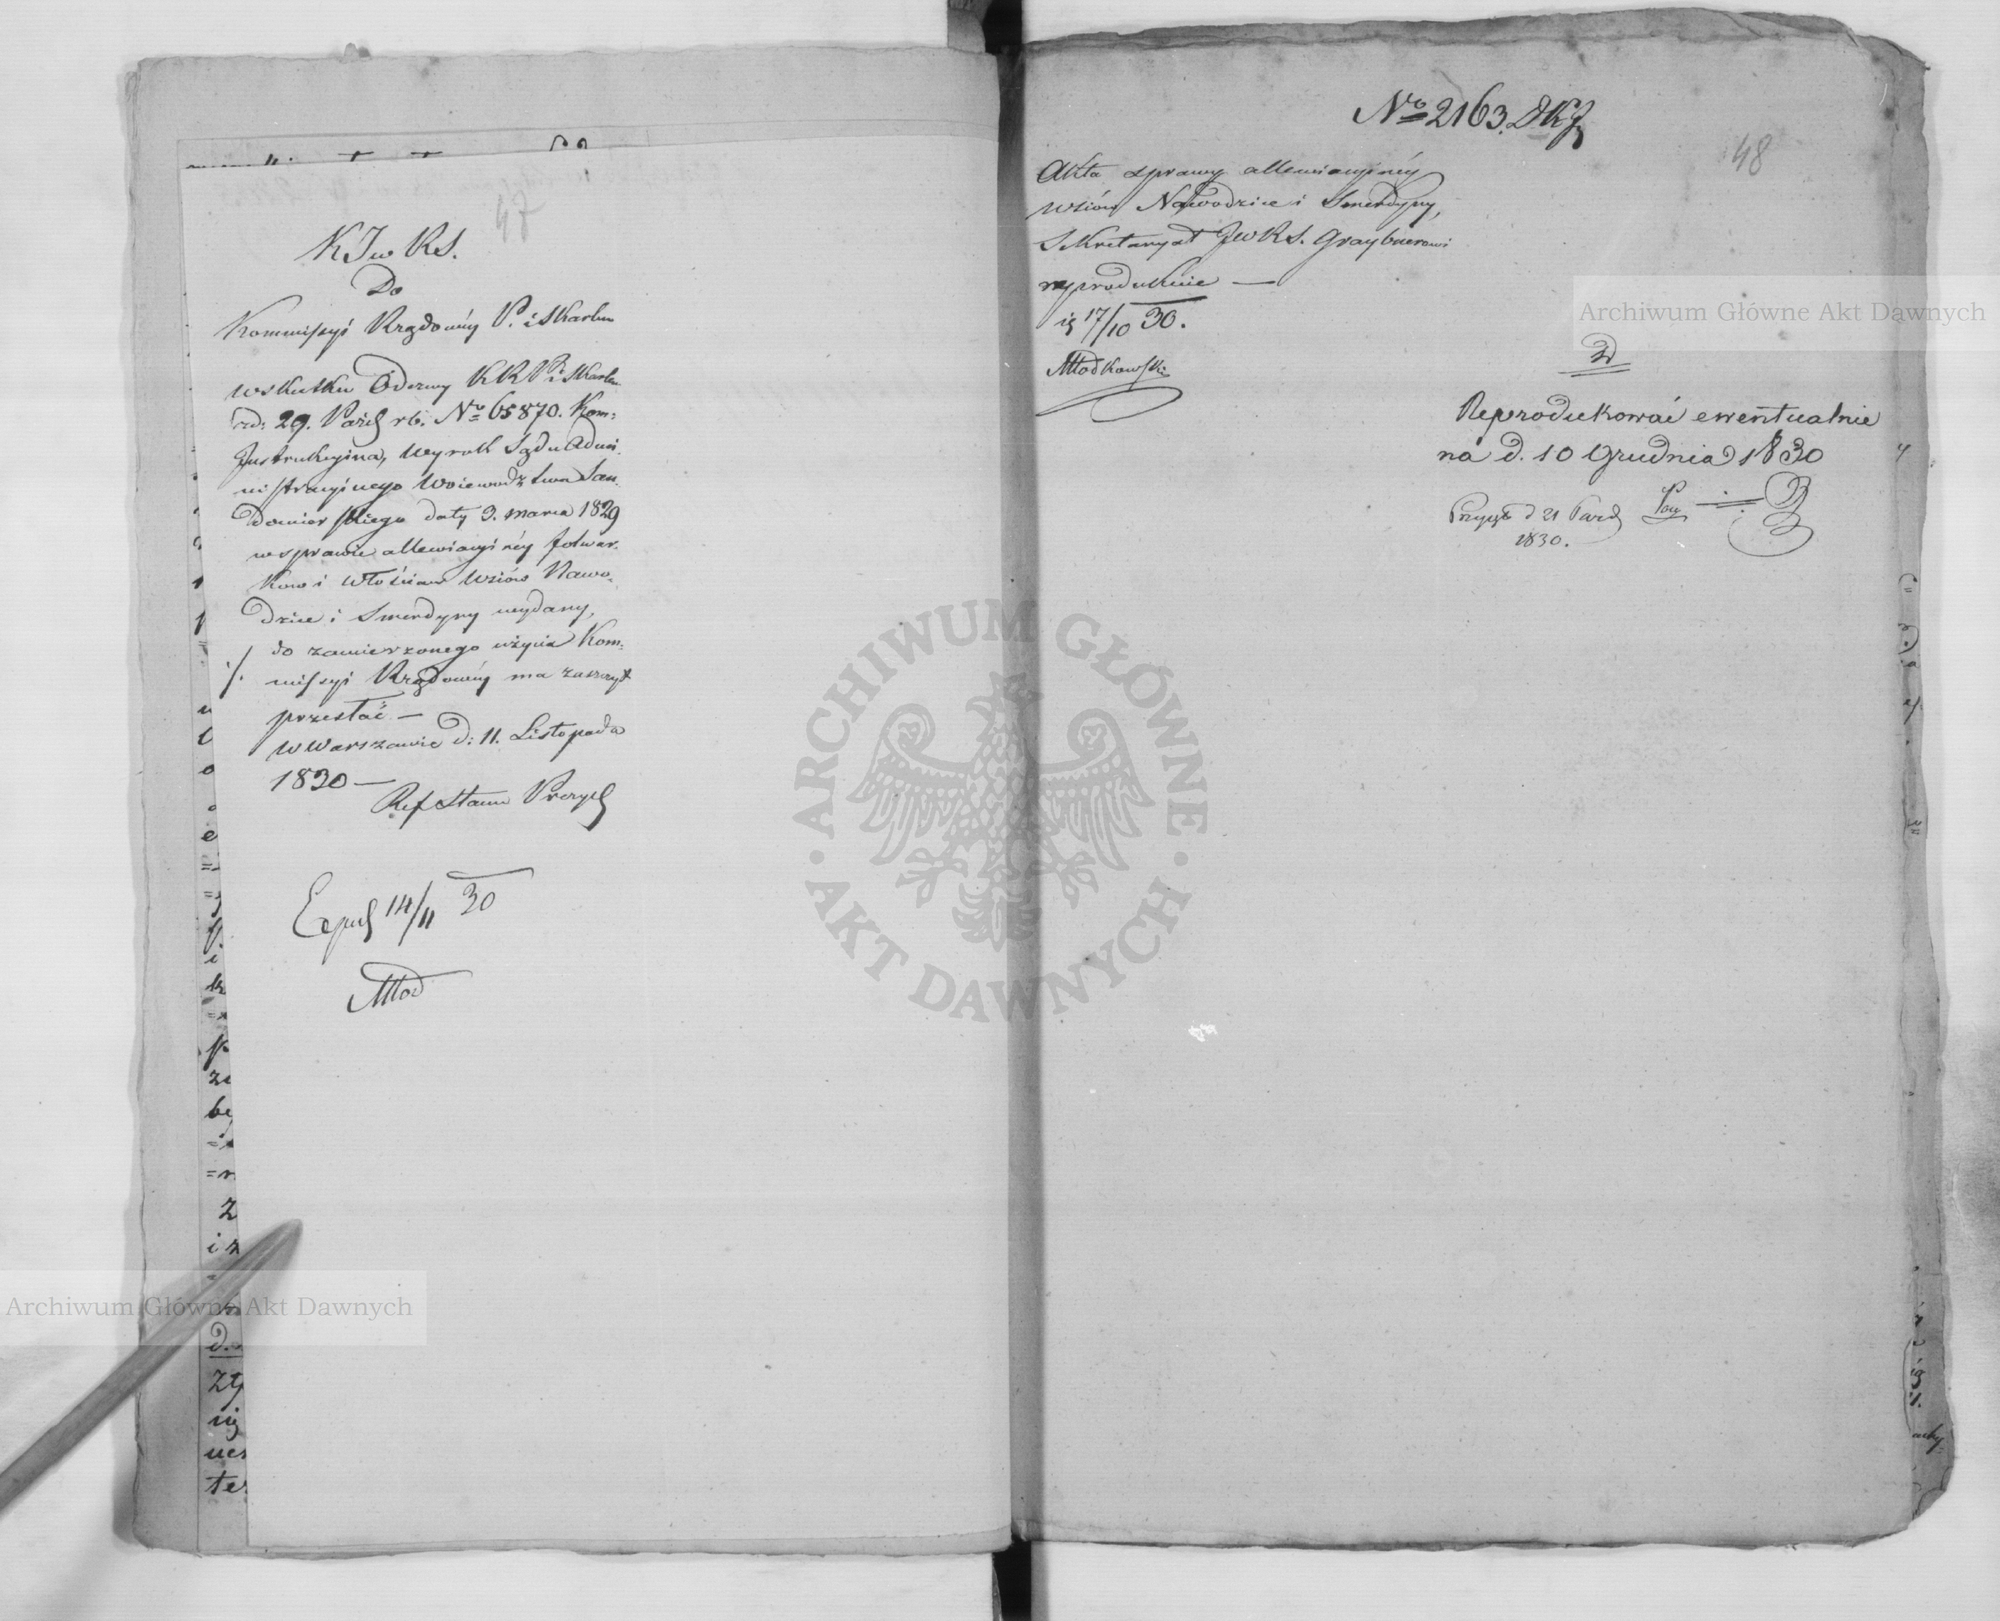 47
K J w KS.
Do
Kommissyi Rządowéy P. i Skarbu
w skutku Odezwy KRP i Skarbu
z d: 29. Paźd rb. No 65870. Kom=
Instrukcyina, wyrok Sądu Admi
nistracyinego Woiewodztwa San
domierskiego daty 3. marca 1829
w sprawie allewiacyinéy folwar
kow i Włościan wsiów Nawo=
dzice i Smerdyny wydany,
do zamierzonego użycia Kom=
missyi Rządowéy ma zaszczyt
przesłać —
w Warszawie d: 11. Listopada
1830 —
Ref Stanu Prezyd
Exped 14/11 30
Młod
No 2163. DKJ
48
Akta sprawy allewiacyinéy
wsiów Nawodzice i Smerdyny,
Sekretaryat JwKS. Graybnerowi
reprodukuie —
17/10 30.
Młodkowski
Reprodukować ewentualnie
na d. 10 Grudnia 1830
d 21 Paźd
1830.
Archiwum Główne Akt Dawnych
Archiwum Główne Akt Dawnych
ARCHIWUM GŁÓWNE
AKT DAWNYCH